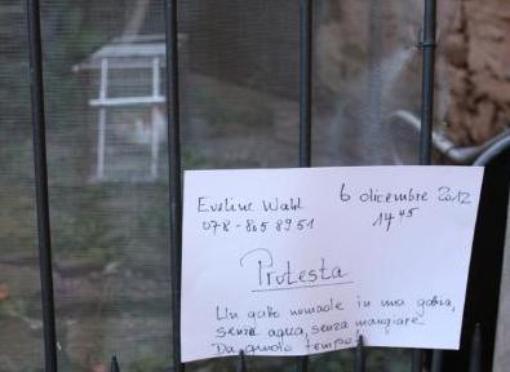 Eveline Wahl 6 dicembre 2012
078-865 89 51 14 45
Protesta
Un gatto nomade in una gabia,
senza aqua, senza mangiare
Da quando tempo?